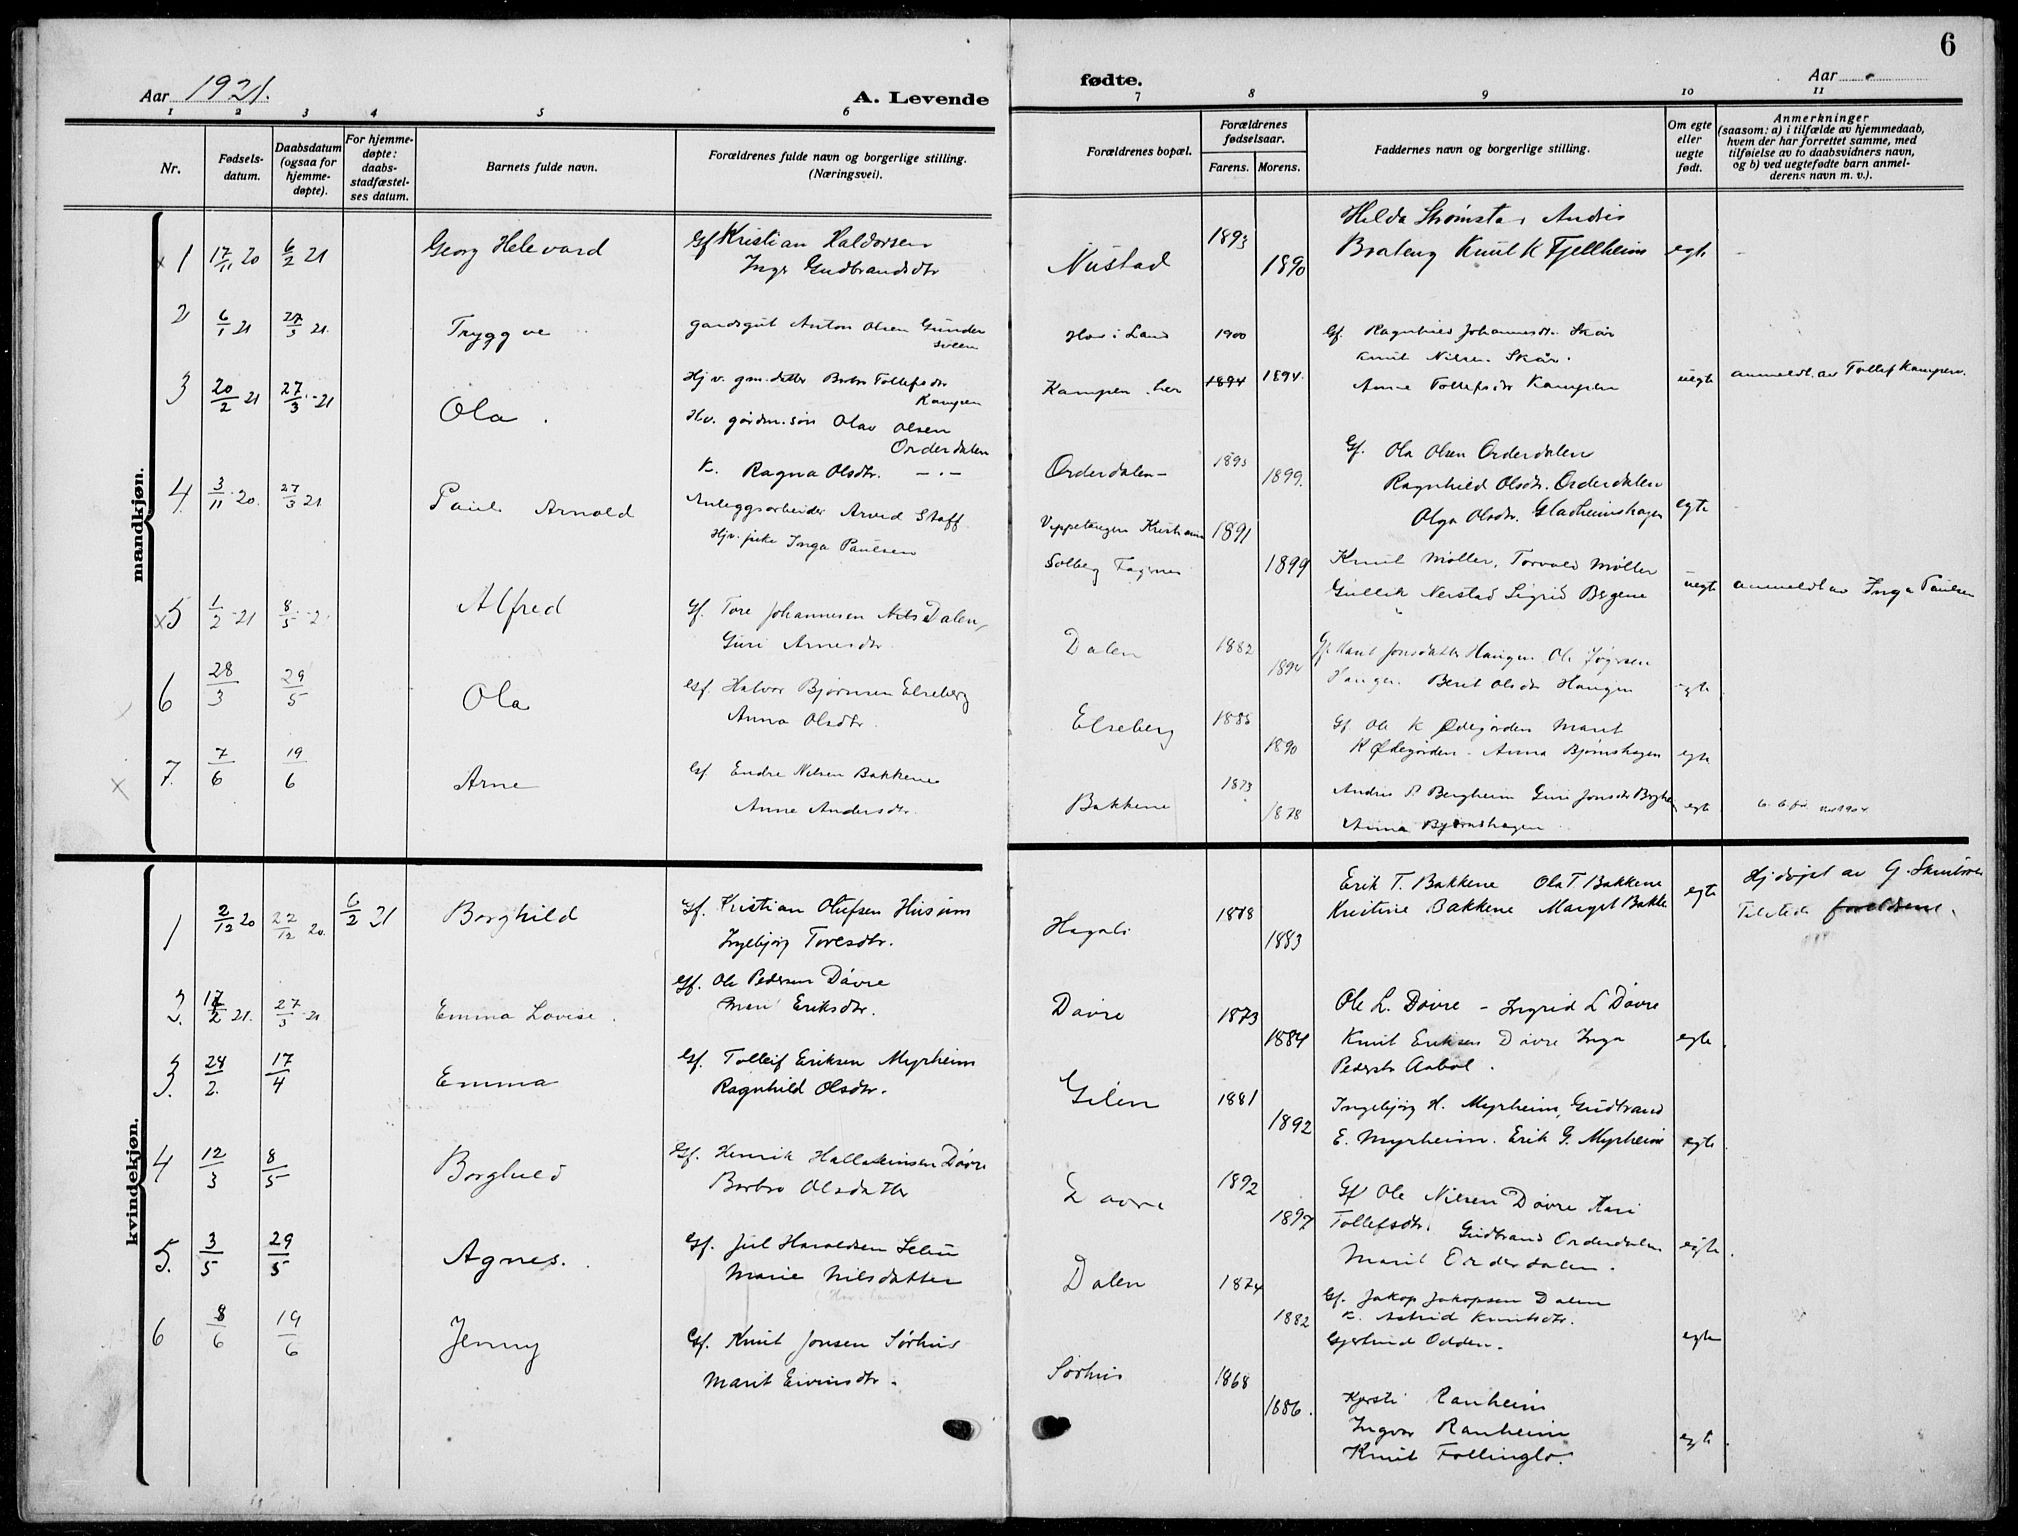 6
Aar 1921.
A. Levende
fødte.
Aar
1 2 3 4 5 6 7 8 9 10 11
Nr.
Fødsels-
datum.
Daabsdatum
(ogsaa for
hjemme-
døpte).
For hjemme-
døpte:
daabs-
stadfæstel-
ses datum.
Barnets fulde navn.
Forældrenes fulde navn og borgerlige stilling.
(Næringsvei).
Forældrenes bopæl.
Forældrenes
fødselsaar.
Farens. Morens.
Faddernes navn og borgerlige stilling.
Om egte
eller
uegte
født.
Anmerkninger
(saasom: a) i tilfælde av hjemmedaab,
hvem der har forrettet samme, med
tilføielse av to daabsvidners navn,
og b) ved uegtefødte barn anmel-
derens navn m. v.).
mandkjøn.
x 1 17/11 20 6/2 21 Georg Helevard
Gf Kristian Haldorsen
Inga Gudbrandsdtr
Nustad 1893 1890
Hilda
Andris
Brateng Knut K Fjellheim egte
2 6/1 21 27/3 21 Tryggve
gardsgut Anton Olsen Gunder
sveen
Hov i Land 1900
Hj v. gm. datter Bobro Tollefsdtr
Kampen
Kampen her 1894 1894
Gf. Ragnhild Johannesdtr Skår
Knut Nilsen Skår.
Anne Tollefsdtr Kampen uegte anmeldt av Tollef Kampen.
3 20/2 21 27/3 21 Ola
gårdm. søn Olav Olsen
Orderdalen
K. Ragna Olsdtr. — . —
Orderdalen 1895 1899.
Gf. Ola Olsen Orderdalen
Ragnhild Olsdtr. Orderdalen
Olga Olsdtr. Gladheimshagen egte
4. 3/11 20. 27/3 21 Paul Arnold
Anleggsarbeider Arvid Staff
Hjv. pike Inga Paulsen
Vippetangen Kristiania 1891
Solberg Fagernes 1899
Knut Møller, Torvald Møller
Gullik Nerstad Sigrid Bergene uegte anmeldt av Inga Paulsen
x5 1/2 21 8/5 2 Alfred
Gf. Tore Johannesen Dalen,
Guri Arnesdtr
Dalen 1882 1894
Jonsdatter Haugen
Berit Olsdtr Haugen egte
6 28/3 29/5 Ola
Gf. Halvor Bjørnsen Elseberg
Anna Olsdtr.
Elseberg 1885 1890
Gf Ole K Ødegården Marit
K Ødegården. Anna Bjørnshagen egte
x 7. 7/6 19/6 Arne
Gf Endre Nilsen Bakkene
Anne Andersdtr.
Bakkene 1873 1878
Andris P Bergheim Guri Jonsdtr
Anna Bjørnshagen egte
kvindekjøn.
1 2/12 20 22/12 20. 6/2 21 Borghild
Gf. Kristian Olufsen Husum
Ingebjørg Toresdtr.
Hagali 1878 1883
Erik T. Bakkene Ola T Bakkene
Kristine Bakkene Margit Bakke egte
Hj døpt av G.
Tilstede foreldrene.
2. 17/2 21. 27/3 21 Emma Lovise.
Gf. Ole Pedersen Døvre
Mari Eriksdtr.
Døvre 1873 1884
Ole L. Døvre – Ingrid L Døvre
Knut Eriksen Døvre Inga
Pedersdtr egte.
3. 24/2. 17/4 Emma
Gf. Tolleif Eriksen Myrheim
Ragnhild Olsdtr.
Gilen 1881 1892
Ingebjørg H. Myrheim, Gudbrand
E. Myrheim. Erik G. Myrheim egte.
4 12/3 8/5 Borghild
Gf. Henrik Hallsteinsen Døvre
Barbro Olsdatter
Døvre 1892 1897
Gf Ole Nilsen Døvre Kari
Tollefsdtr. Gudbrand Orderdalen
Marit Orderdalen. egte.
5. 3/5 29/5 Agnes.
Gf. Juul Haraldsen Lelm
Marie Nilsdatter
Dalen 1874 1882
Gf. Jakop Jakopsen Dalen
K. Astrid Knutsdtr.
Gjertrud Odden. egte
6 8/6 19/6 Jenny
Gf. Knut Jonsen Sørhus
Marit Eivinsdtr.
Sørhus 1868 1886.
Kjersti Ranheim
Ingvar Ranheim
Knut Follinglo. egte.